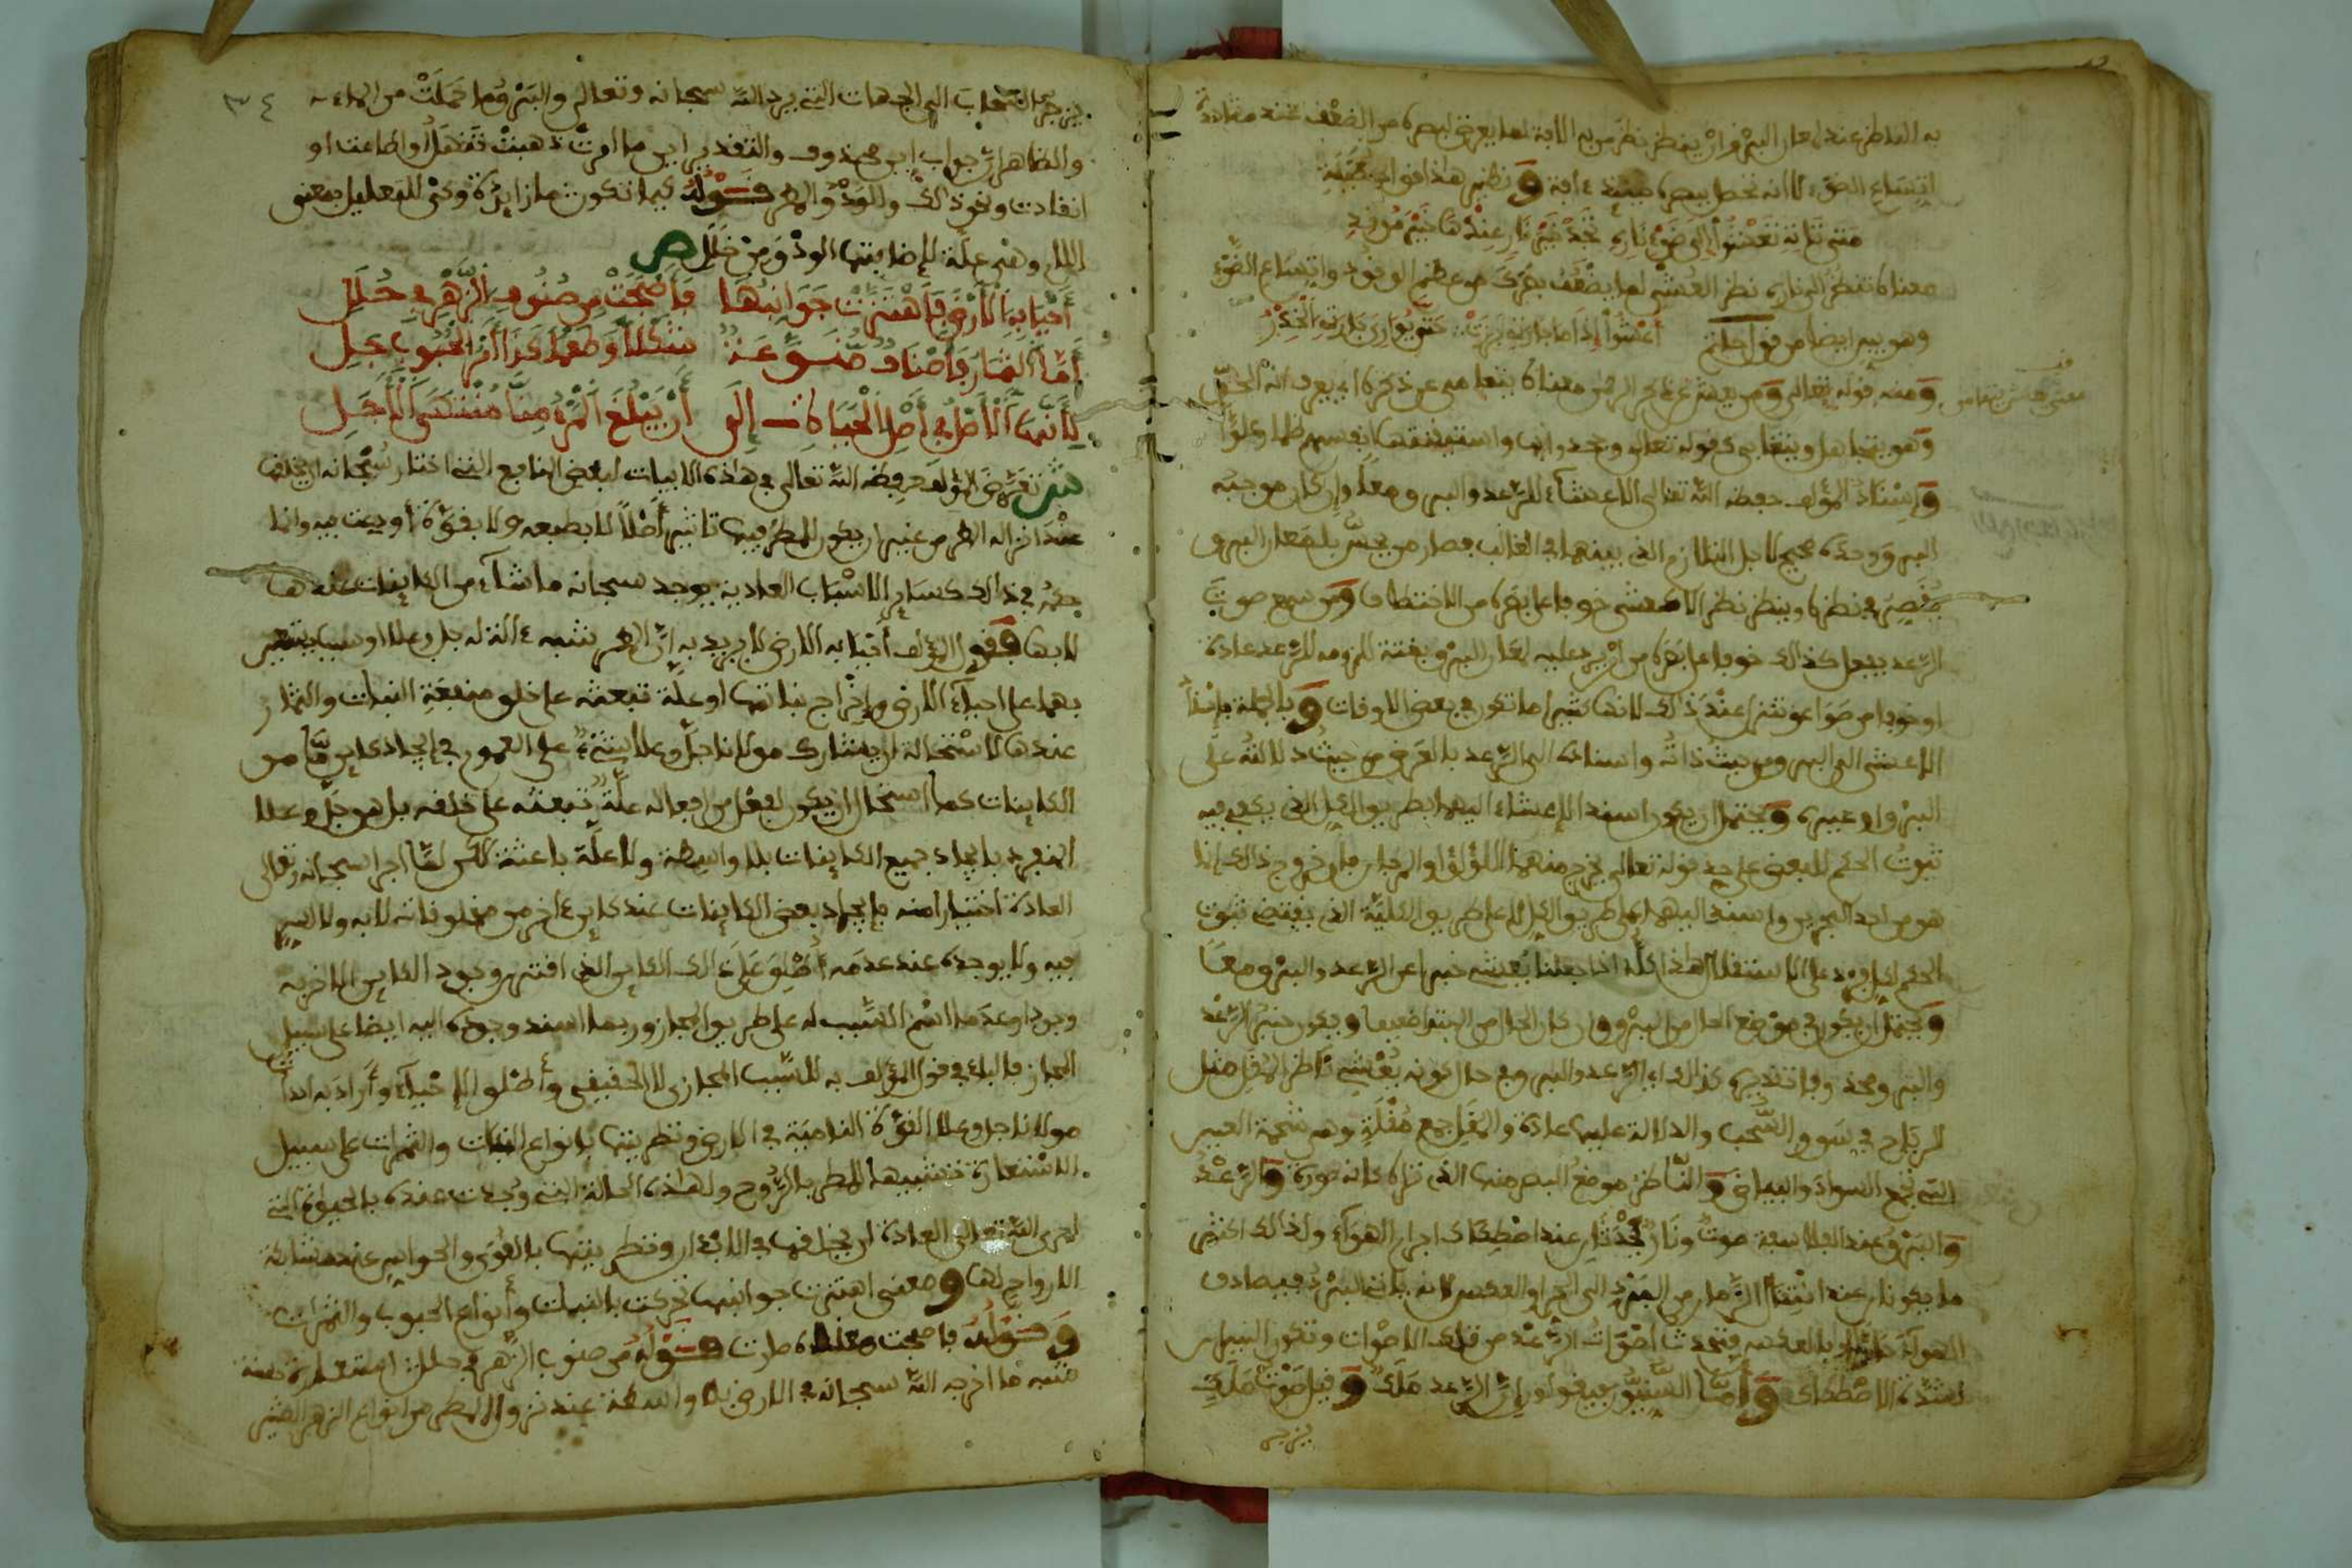 به الناظر عند لمعان البرق أن ينظر نظر من به آلافة لما يعرض لبصره من الضعف عند مشاهدة
اتساع الضوء لا انه نحصل ببصره حينئذ ءافة ونظير هذا قول الحطيئة
متى تأته تعشو إلى ضوء ناره تجد خير نار عندها خير موقد
معناه تنظر الى ناره نظر العشي لما يضعف بصرك من عظم الوقود واتساع الضوء
وهو بين ايضا من قول حاتم أعشوا إذا ما جارتي برزت حتى يواري جارتي الخدر
ومنه قوله تعالى ومن يعش عن ذكر الرحمن معناه يتعامى عن ذكره اي يعرف انه الحق
وهو يتجاهل ويتغابى كقوله تعالى وجحدوا بها واستيقنتها انفسهم ظلما وعلوا
وإسناد المؤلف حفظه الله تعالى الاعشاء للرعد والبرق معا وإن كان موجبه
البرق وحده صحيح لاجل التلازم الذي بينهما في الغالب فصار من يحس بلمعان البرق
يقصر في نظره وينظر نظر الاعشى خوفا على بصره من الاختطاف ومن سمع صوت
الرعد يفعل كذلك خوفا على بصره من أن يرد عليه لمعان البرق بغتة للزومه للرعد عادة
او خوفا من صواعق تنزل عند ذلك لانها كثيرا ما تكون في بعض الاوقات وبالجملة فإسناد
الاعشى الى البرق من حيث ذاته واسناده الى الرعد بالعرض من حيث دلالته على
البرق او غيره ويحتمل أن يكون اسند الإعشاء اليهما بطريق الكل الذي يكفي فيه
ثبوت الحكم للبعض على حد قوله تعالى يخرج منهما اللؤلؤ والمرجان فإن خروج ذلك إنما
هو من احد البحرين واسند اليهما على طريق الكل لا على طريق الكلية الذي يقتضي ثبوت
الحكم لكل فرد على الاستقلال هذا كله اذا جعلنا يعشي خبرا عن الرعد والبرق معا
ويحتمل ان يكون في موضع الحال من البرق وان كان الحال من المبتدأ ضعيفا ويكون خبر الرعد
والبرق محذوفا تقديره كذلك اي الرعد والبرق في حال كونه يعشي ناظر المقل مثل
الرياح في سوق السحب والدلالة عليها عادة والمقل جمع مقلة وهي شحمة العين
التي تجمع السواد والبياض والناظر موضع البصر منها الذي تراه كانه صورة والرعد
والبرق عند الفلاسفة صوت ونار تحدثان عند اصطكاك اجرام الهواء ولذلك اكثر
ما يكونان عند انتقال الزمان من البرد الى الحر او العكس لانه يأتي البرد فيصادف
الهواء حارا او بالعكس فتحدث اصوات الرعد من تلك الاصوات وتكون النيران
لشدة الاصطكاك وأما السنيون فيقولون إن الرعد ملك وقيل صوت ملك
يزجر
معنى يعش يتعامى
٣٤
يزجر السحاب الى الجهات التي يريد الله سبحانه وتعالى والبرق وما حملت من الماء
والظاهر أن جواب إن محذوف والتقدير اين ما امرت ذهبت تفضلا او اطاعت او
انقادت ونحو ذلك والودق المطر قوله كيما تكون ما زايدة وكي للتعليل بمعنى
اللام وهي علة للإضافتها الودق من خلل ص
أحيا به الأرض فاهتزت جوانبها فأصبحت من صنوف الزهر في حلل
أما الثمار فأصناف منوعة شكلا وطعما كذا أمر الحبوب جل
كأنما الأصل في أصل الحياة إلى أن يبلغ المرء منا منتهى الأجل
ش تعرض المؤلف حفظه الله تعالى في هذه الابيات لبعض المنافع التي اختار سبحانه ان يخلق
عند انزاله المطر من غير أن يكون للمطر فيها تاثير أصلا لا بطبعه ولا بقوة أودعت فيه وانما
حكمه في ذلك كسائر الاسباب العادية يوجد سبحانه ما شاء من الكاينات عندها
لا بها فقول المؤلف أحيا به الارض لا يريد به إن المطر شبه ءالة له جل وعلا او سببا يستعين
بهما على احياء الارض وإخراج نباتها او علة تبعثه على خلق منفعة النبات والثمار
عندها لاستحالة أن يشارك مولانا جل وعلا شيء على العموم في إيجاد كائن ما من
الكاينات كما استحال أن يكون لفعل من افعاله علة تبعثه على خلقه بل هو جل وعلا
المنفرد بايجاد جميع الكاينات بلا واسطة ولا علة باعثة لكن لما اجرى سبحانه وتعالى
العادة اختيارا منه بإيجاد بعض الكاينات عند كاين ءاخر من مخلوقاته لا به ولا اثر
فيه ولا يوجده عند عدمه أطلق على ذلك الكاين الذي اقتنر وجود الكاين الاخر به
وجودا وعدما اسم السبب له على طريق المجاز وربما اسند وجوده اليه ايضا على سبيل
المجاز فالباء في قول المؤلف به للسبب المجازي لا الحقيقي وأطلق الإحياء وأراد به احداث
مولانا جل وعلا القوة النامية في الارض وتطريتها بانواع النبات والثمرات على سبيل
الاستعارة تشبيها للمطر بالروح ولهذه الحالة التي وجدت عنده بالحياة التي
اجرى الله تعالى العادة ان يخلقها في الابدان وتطريتها بالقوى والحواس عند مشابكة
الارواح لها ومعنى اهتزت جوانبها تحركت بالنبات وأنواع الحبوب والثمرات
وقوله فاصبحت معناه صارت قوله من صنوف الزهر في حلل استعارة حسنة
شبه ما اخرجه الله سبحانه في الارض بلا واسطة عند نزول المطر من انواع الزهر